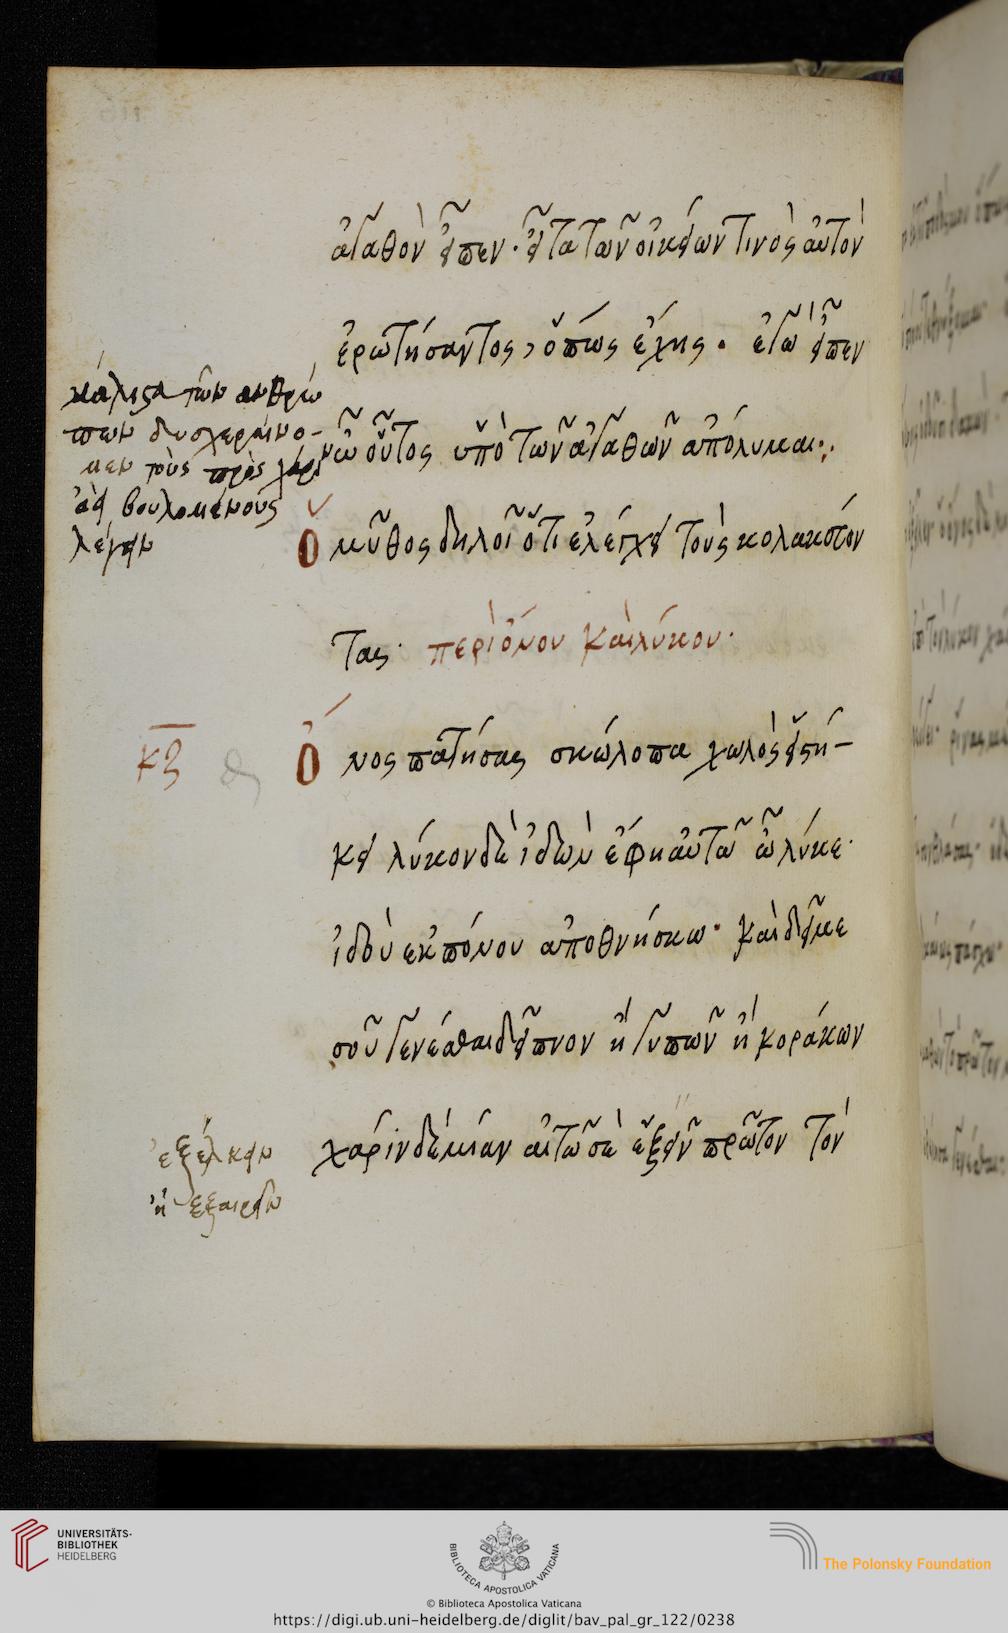 ἀγαθὸν εἶπεν· εἶτα τῶν οἰκείων τινὸς αὐτὸν
ἐρωτήσαντος, ὅπως ἔχης· ἐγὼ εἶπεν
ὦ οὗτος ὑπὸ τῶν ἀγαθῶν ἀπόλυμαι:
μάλιστα τῶν ανθρώ
πων δυσχεραίνο-
μεν τοὺς πρὸς χάριν
ἀεὶ βουλομένους
λέγειν
Ὁ μῦθος δηλοῖ ὅτι ἐλέγχει τοὺς κολακεύον
τας· περὶ ὄνου καὶ λύκου·
κζ
Ὄνος πατήσας σκώλοπα χωλὸς εἱστή-
κει λύκον δὲ ἰδὼν ἔφη αὐτῶ ὦ λύκε·
ἰδοὺ εκ πόνου αποθνήσκω· καὶ δεῖ με
σοῦ γενέσθαι δεῖπνον ἢ γυπῶν ἢ κοράκων
χάριν δέ μίαν αἰτῶ σὲ ἐξεῖν πρῶτον τὸν
ἐξέλκειν
ἢ εξαιρεῖν
UNIVERSITÄTS-
BIBLIOTHEK
HEIDELBERG
BIBLIOTECA APOSTOLICA VATICANA
The Polonsky Foundation
© Biblioteca Apostolica Vaticana
https://digi.ub.uni-heidelberg.de/diglit/bav_pal_gr_122/0238